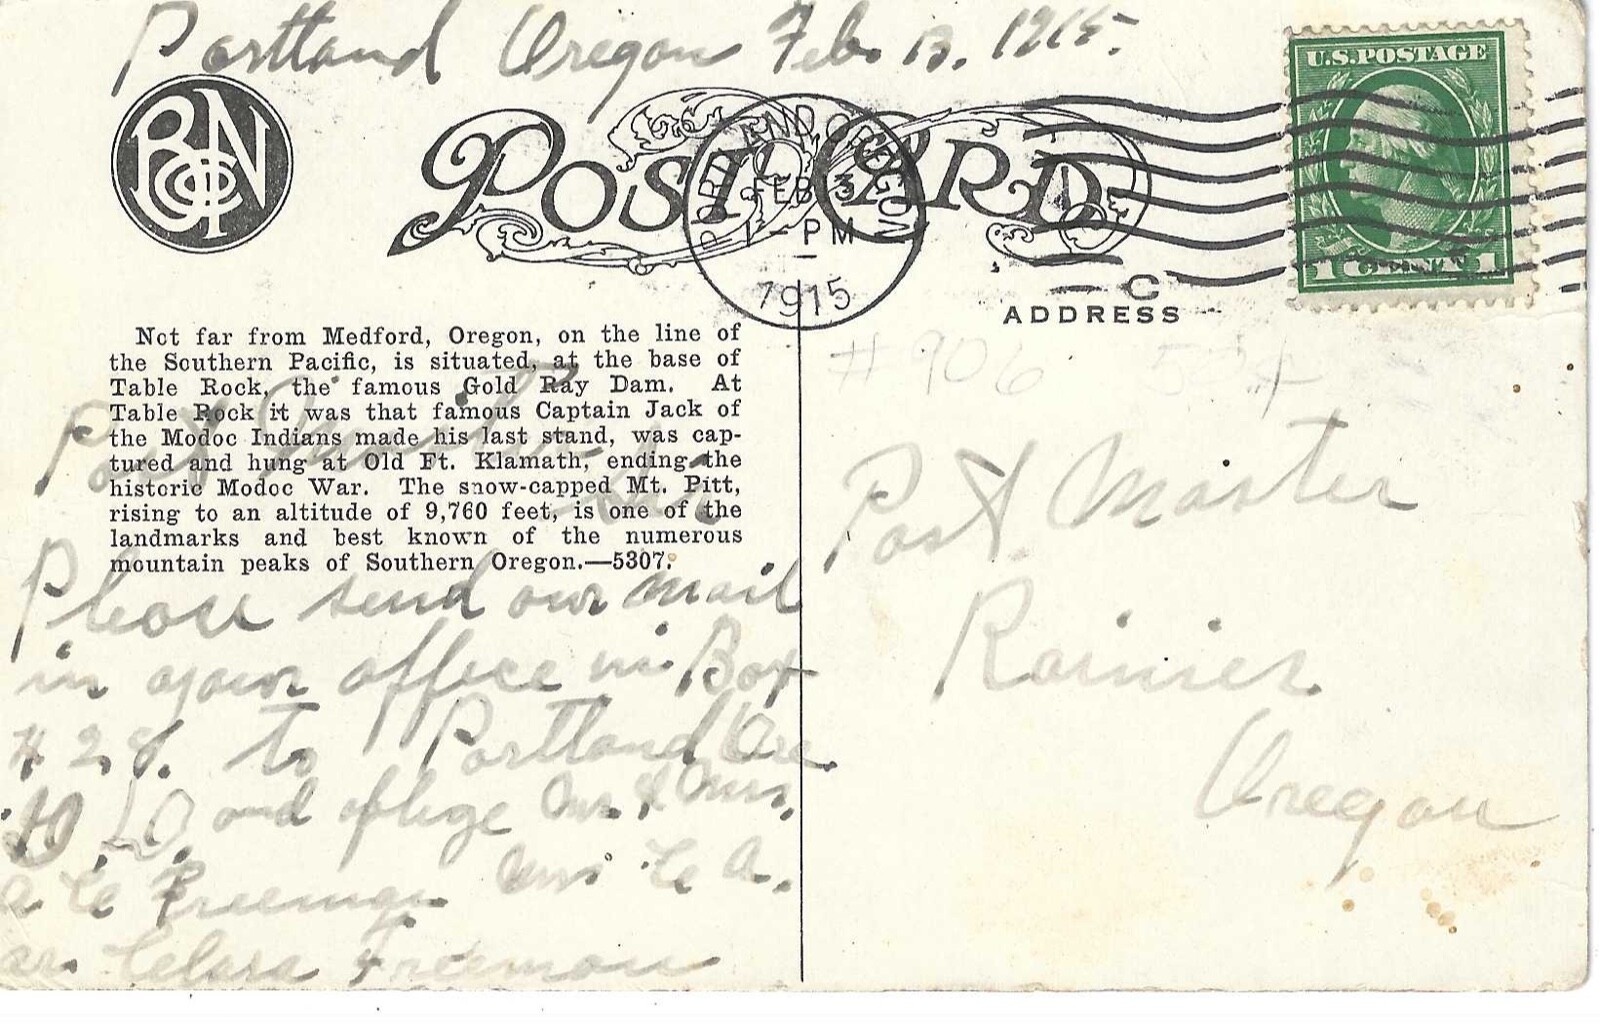 Portland Oregon Feb. 13. 1915.
U.S. POSTAGE
1 CENT 1
RN
POST CARD
PORTLAND OREGON
FEB 13
1 - PM
1915
C
ADDRESS
Not far from Medford, Oregon, on the line of
the Southern Pacific, is situated, at the base of
Table Rock, the famous Gold Ray Dam. At
Table Rock it was that famous Captain Jack of
the Modoc Indians made his last stand, was cap-
tured and hung at Old Ft. Klamath, ending the
historic Modoc War. The snow-capped Mt. Pitt,
rising to an altitude of 9,760 feet, is one of the
landmarks and best known of the numerous
mountain peaks of Southern Oregon.—5307.
Post Master
Sir
Please send our mail
in your office in Box
# 28. to Portland Ore
and oblige Mr & Mrs.
Freeman Mrs
or Clara Freeman
# 906
Post Master
Rainier
Oregon